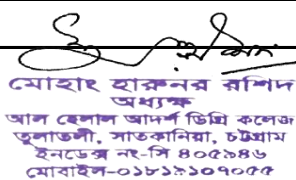 মোহাং হারুনর রশিদ
অধ্যক্ষ
আল হেলাল আদর্শ ডিগ্রি কলেজ
তুলাতলী, সাতকানিয়া, চট্টগ্রাম
ইনডেক্স নং-সি ৪০৫৯৪৬
মোবাইল-০১৮১৯১০৭০৫৫